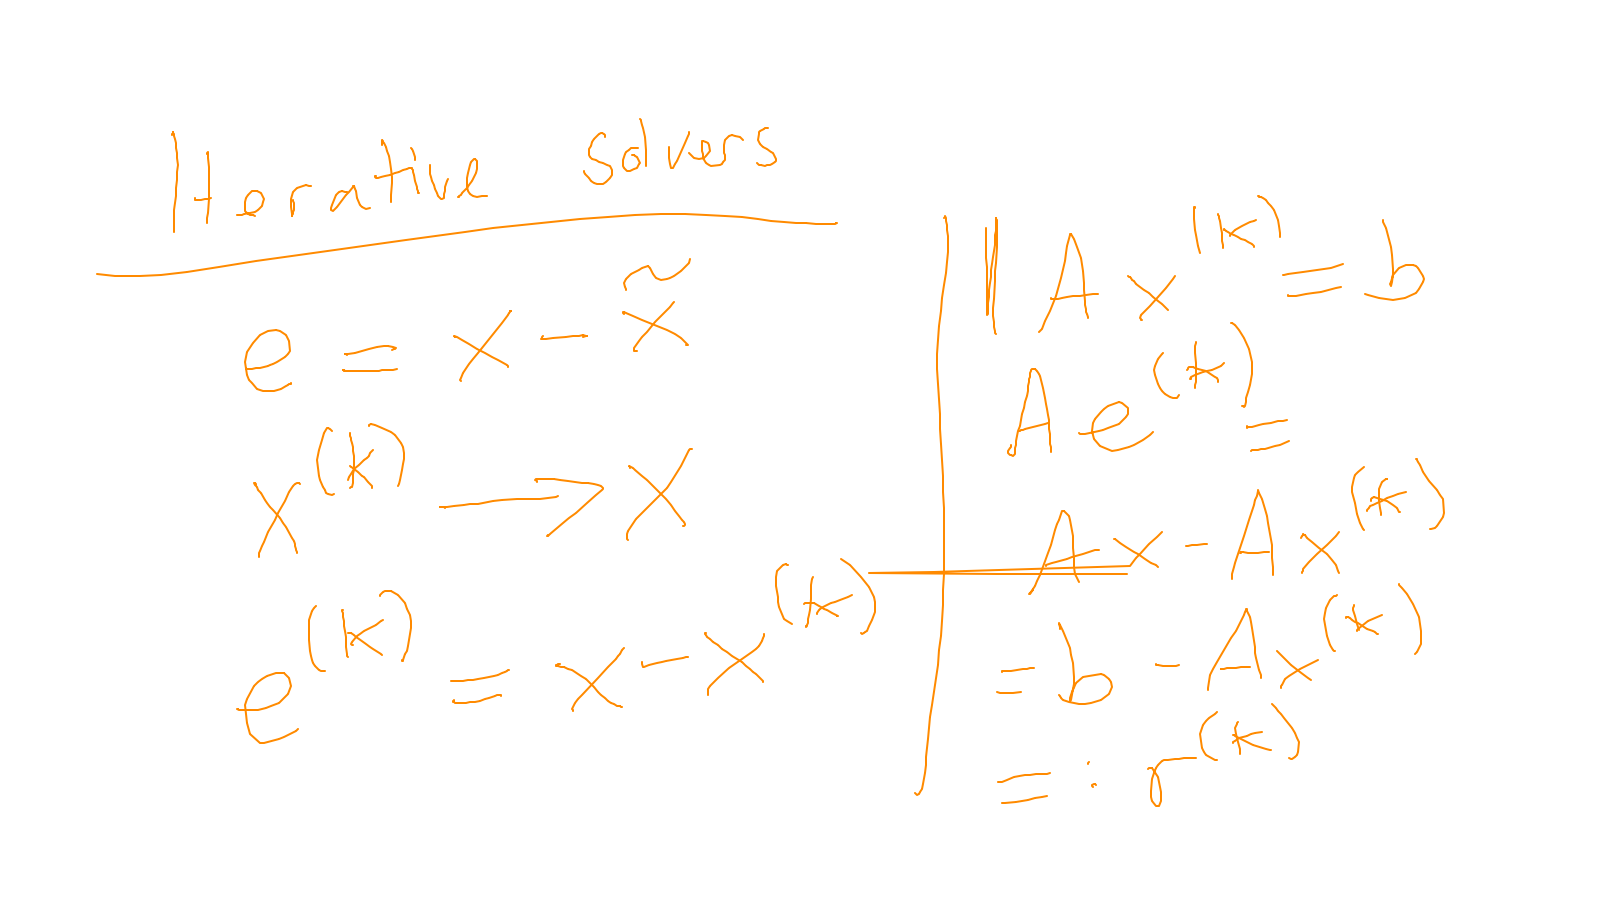 Iterative solvers
e = x - x̃
x^(k) → x
e^(k) = x - x^(k)
|| A x^(k) = b
A e^(k) =
Ax - Ax^(k)
= b - Ax^(k)
=: r^(k)